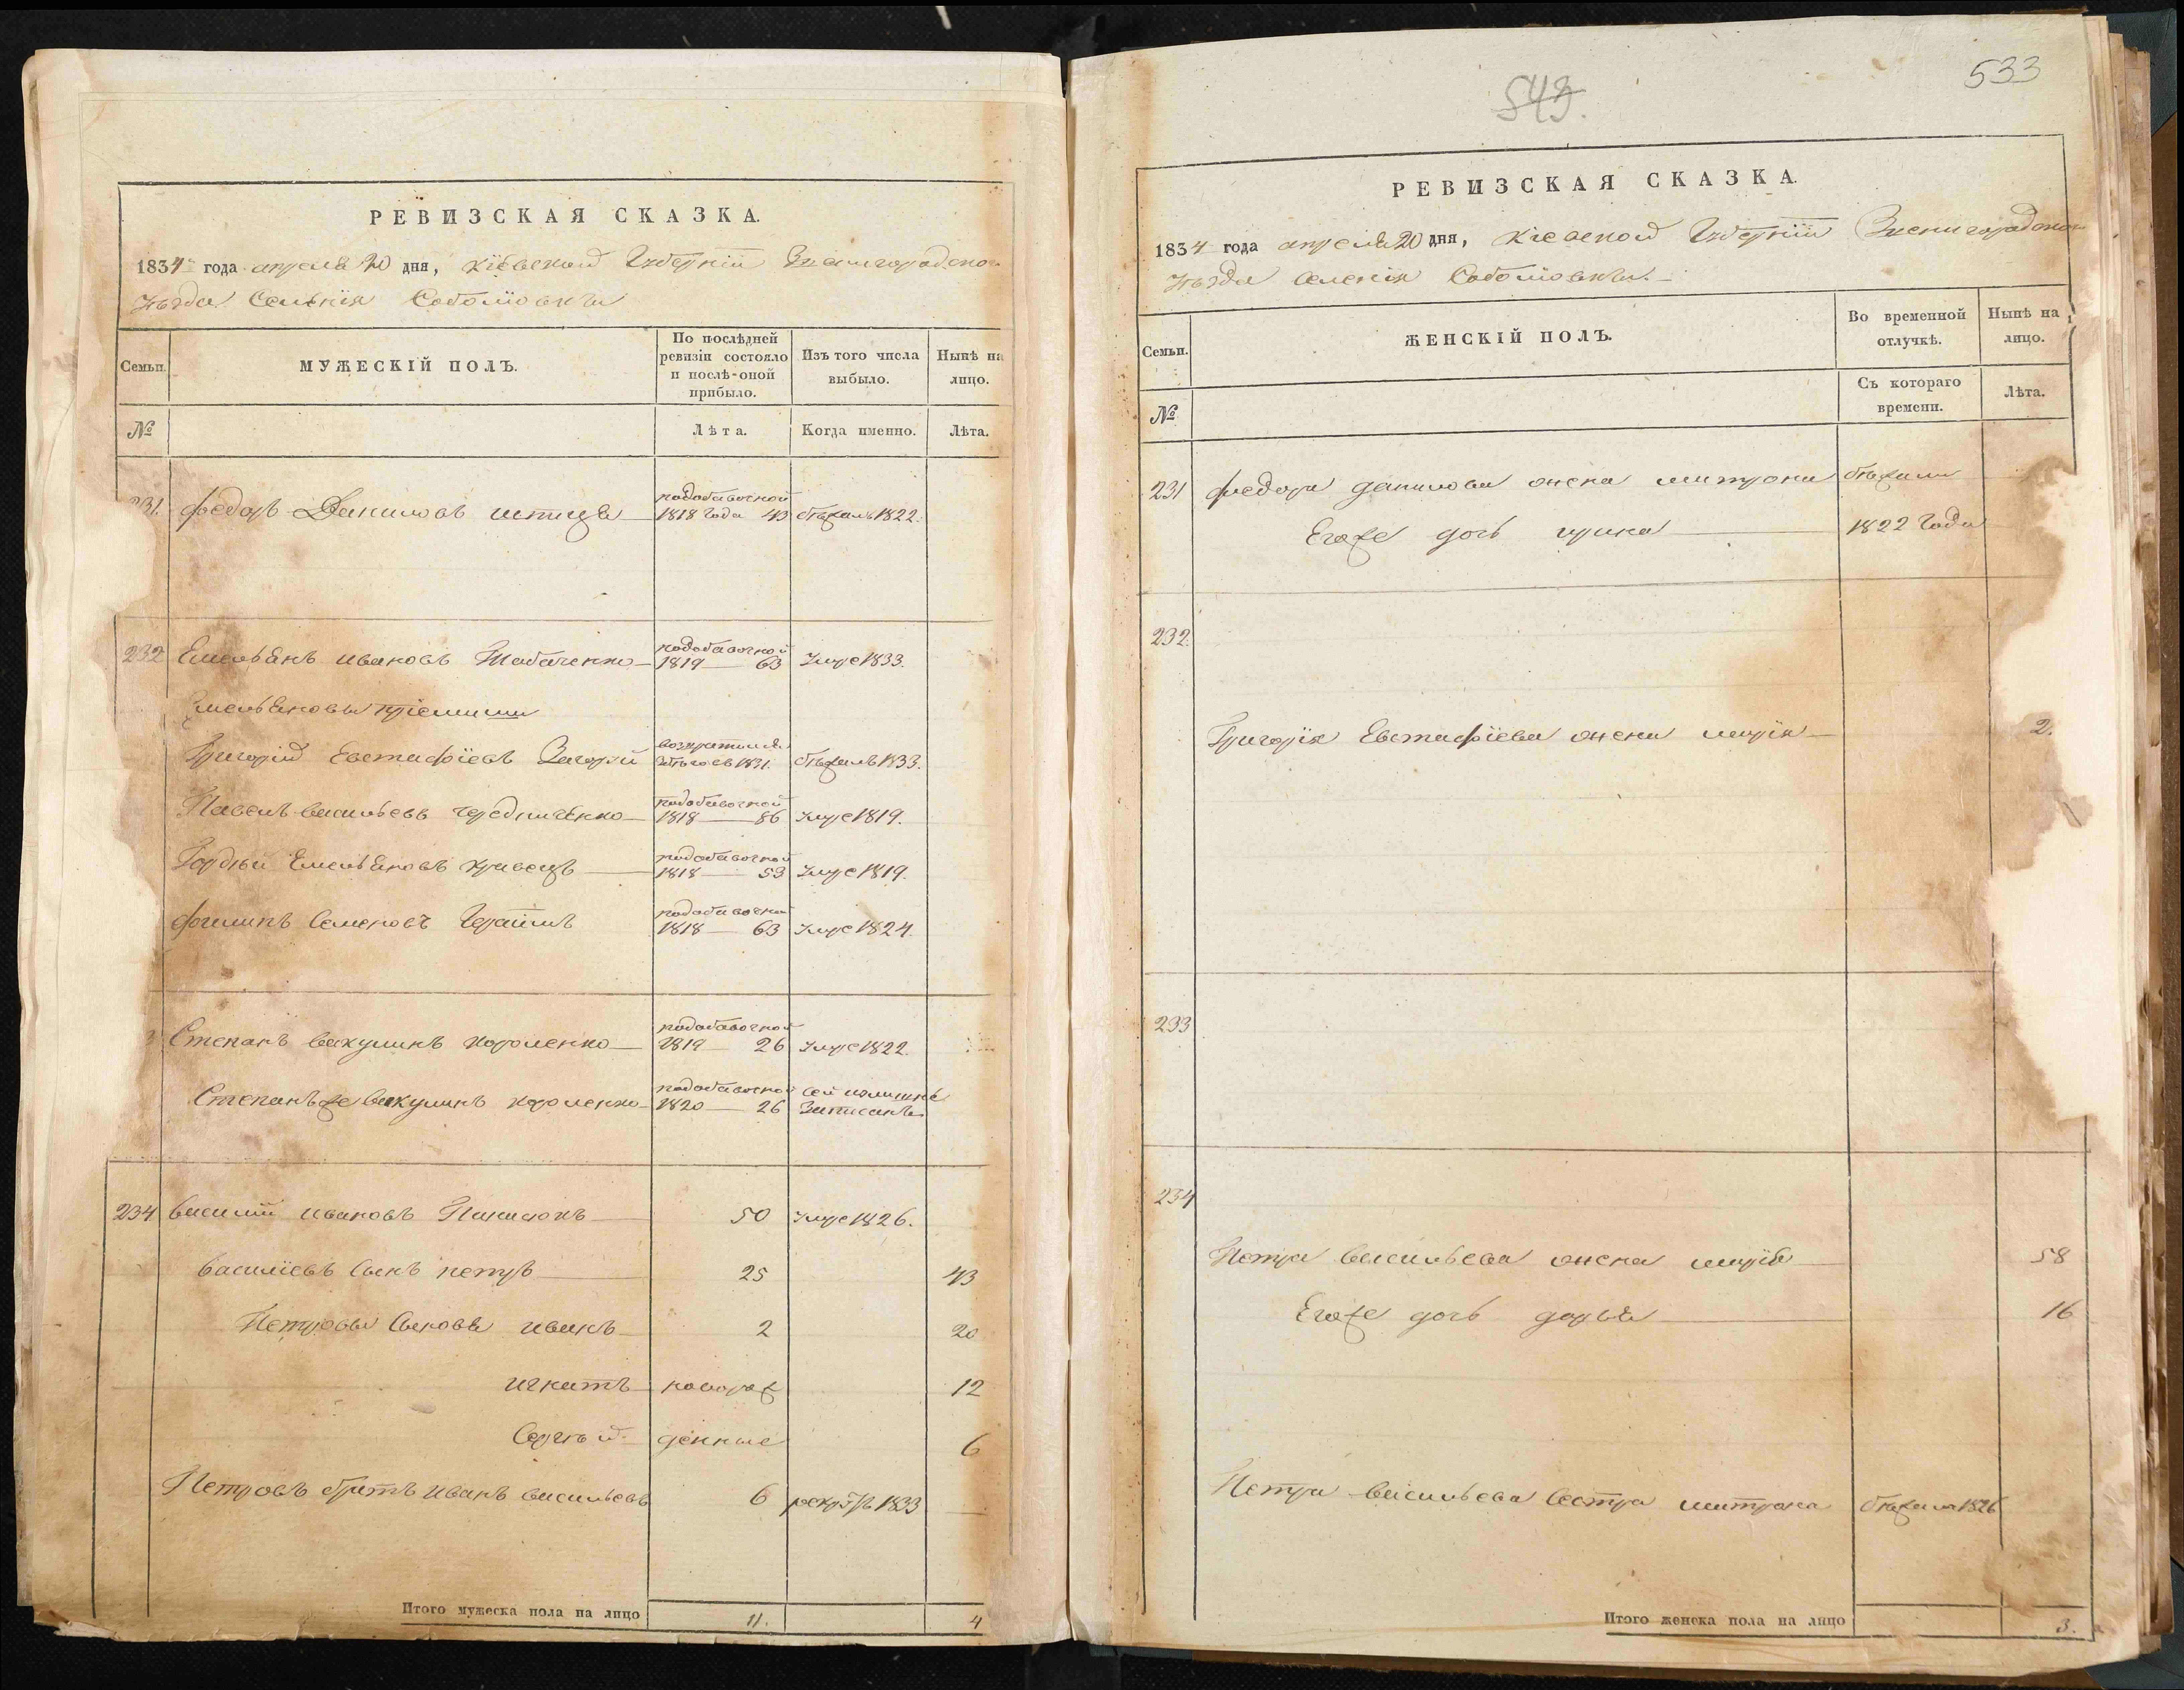 РЕВИЗСКАЯ СКАЗКА.
1834 года апреля 20 дня, Кіевской Губерніи Звенигородского
уѣзда Селенія Соболювки
Семьи. МУЖЕСКІЙ ПОЛЪ. По послѣдней ревизіи состояло и послѣ-оной прибыло. Изъ того числа выбыло. Нынѣ на лицо.
№ Лѣта. Когда именно. Лѣта.
231. Федоръ Даниловъ подобавочной 1818 года 43 бѣжалъ 1822.
232 Емельянъ Ивановъ Шабаченко подобавочной 1819 63 умре 1833.
Емельяновы пріемиши
Григорій Евстафіевъ возвратился 1831. бѣжалъ 1833.
Павелъ Васильевъ Чередниченко подобавочной 1818 86 умре 1819.
Гордѣй Емельяновъ Кравецъ подобавочной 1818 53 умре 1819.
Филипъ Семеновъ подобавочной 1818 63 умре 1824.
Степанъ Вакулинъ Короленко подобавочной 1819 26 умре 1822.
Степанъ же Вакулинъ Короленко подобавочной 1820 26 сей излишне записанъ
234 Василій Ивановъ Панасюкъ 50 умре 1826.
Василіевъ сынъ Петръ 25 43
Петровы сыновья Иванъ 2 20
Игнатъ новорож 12
Сергѣй денные 6
Петровъ братъ Иванъ Васильевъ 6 рекрутъ 1833
Итого мужеска пола на лицо 11. 4
543.
533
РЕВИЗСКАЯ СКАЗКА.
1834 года апреля 20 дня, Кіевской Губерніи Звенигородского
уѣзда Селенія Соболювки.
Семьи. ЖЕНСКІЙ ПОЛЪ. Во временной отлучкѣ. Нынѣ на лицо.
№ Съ котораго времени. Лѣта.
231 Федора Данилова жена Митрона бѣжали
Егоже дочь 1822 года
232.
Григорія Евстафіева жена Марія 2
233
234
Петра Васильева жена Марія 58
Егоже дочь Дарья 16
Петра Васильева сестра Митрона бѣжала 1826
Итого женска пола на лицо 3.